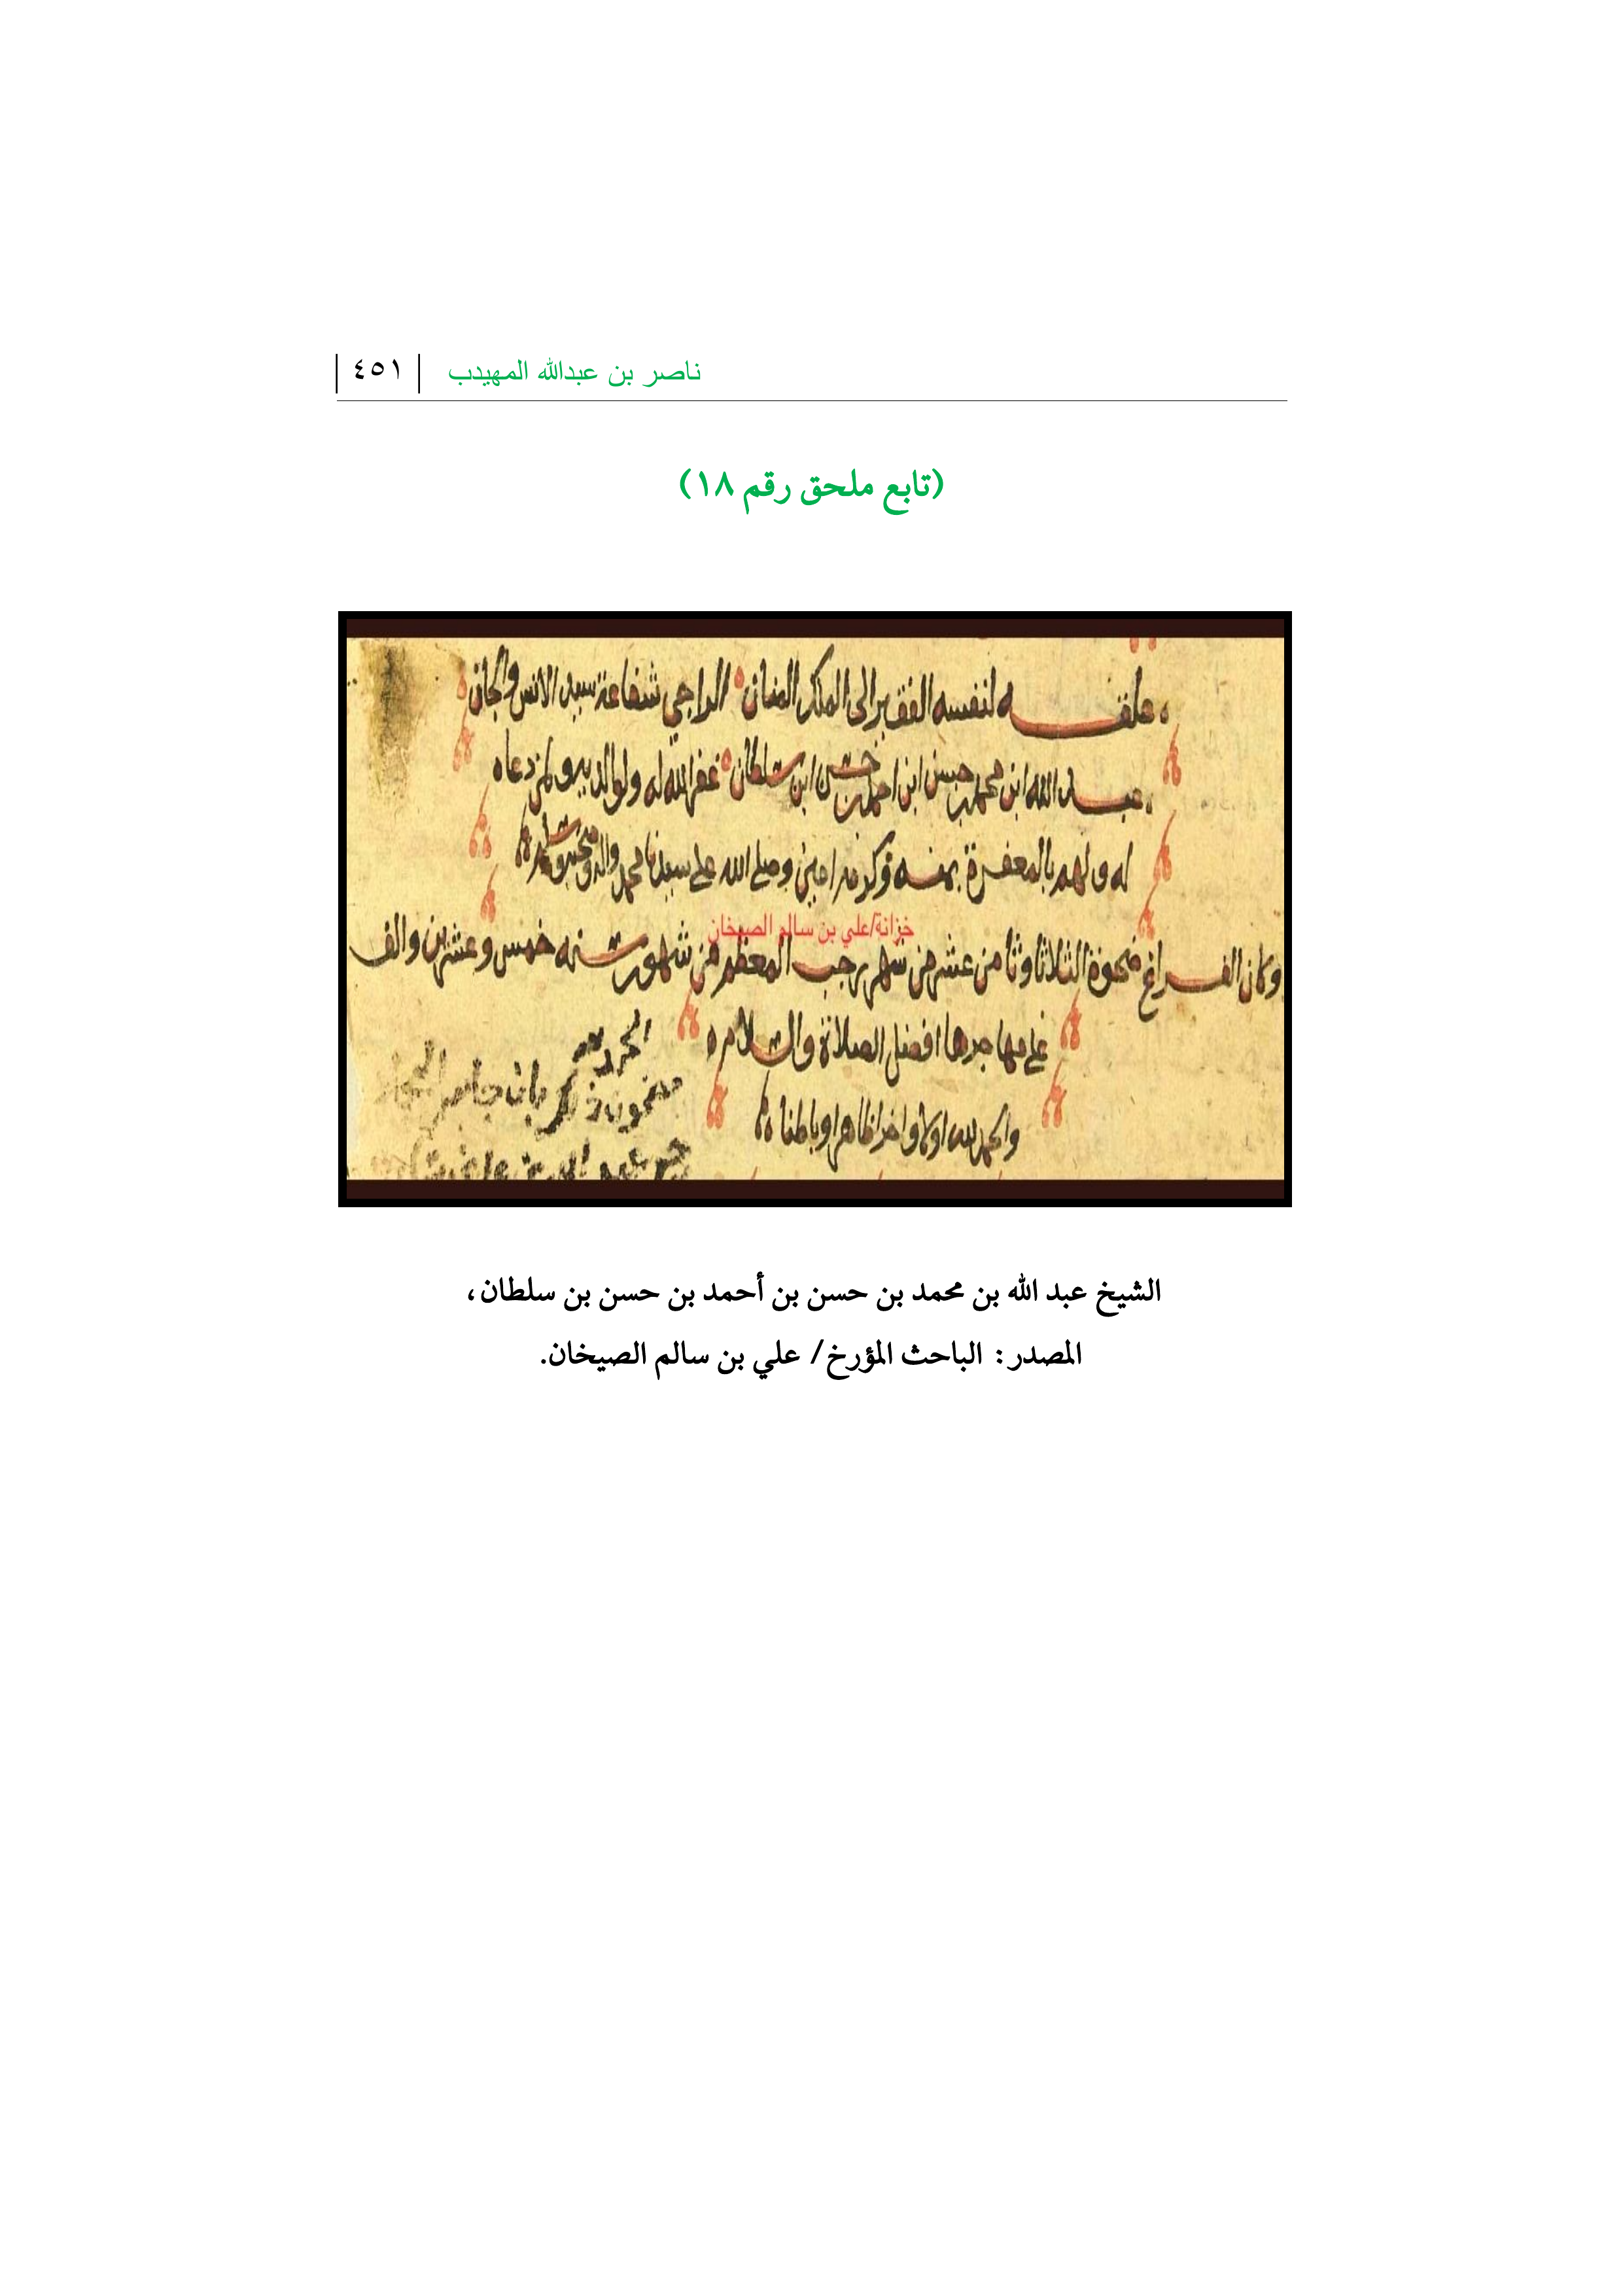 ناصر بن عبدالله المهيدب | ٤٥١ |
(تابع ملحق رقم ١٨)
علقه لنفسه الفقير الى الملك المنان الراجي شفاعة سيد الانس والجان
عبد الله ابن محمد بن حسن ابن احمد بن حسن ابن سلطان غفر الله له ولوالديه ولمن دعاه
له ولهم بالمغفرة بمنه وكرمه امين وصلى الله على سيدنا محمد واله وصحبه وسلم
خزانة/علي بن سالم الصيخان
وكان الفراغ ضحوة الثلاثا وثامن عشر من شهر رجب المعظم من شهور سنه خمس وعشرين والف
على مهاجرها افضل الصلاة والسلام
والحمد لله اولا واخرا ظاهرا وباطنا
الحمد لله
الشيخ عبد الله بن محمد بن حسن بن أحمد بن حسن بن سلطان،
المصدر: الباحث المؤرخ/ علي بن سالم الصيخان.